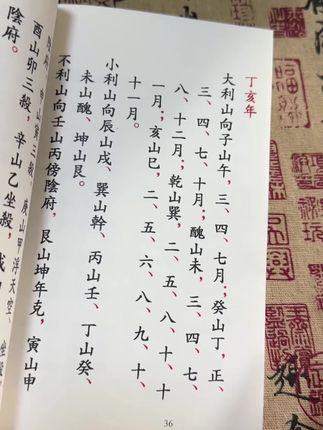 丁亥年
大利山向子山午，三、四、七月；癸山丁，正、
三、四、七、十月；醜山未，三、四、七、
八、十二月；乾山巽，二、五、八、十、十
一月；亥山巳，二、五、六、八、九、十、
十一月。
小利山向辰山戌、巽山幹、丙山壬、丁山癸、
未山醜、坤山艮。
不利山向壬山丙傍陰府，艮山坤年克，寅山申
三殺，庚山甲浮天空、
酉山卯三殺，辛山乙坐殺，
陰府。
36